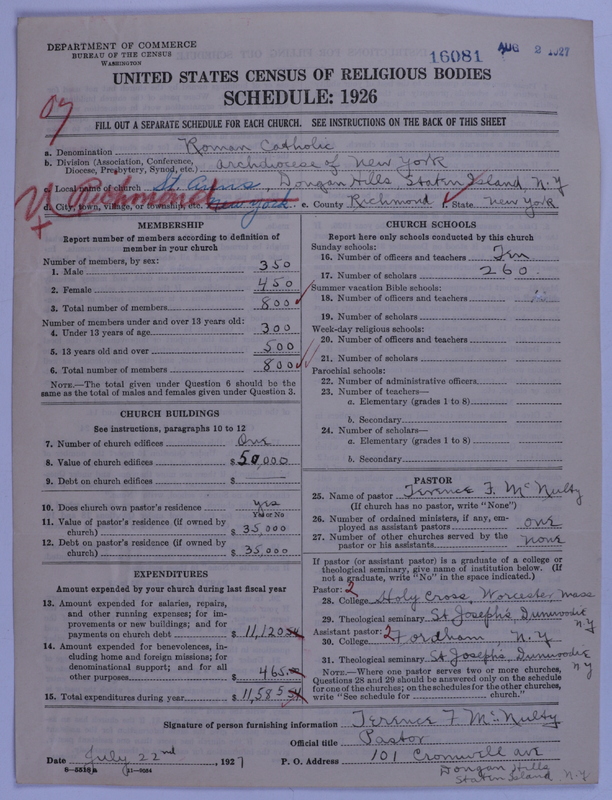 DEPARTMENT OF COMMERCE
BUREAU OF THE CENSUS
WASHINGTON
16081
AUG 2 1927
UNITED STATES CENSUS OF RELIGIOUS BODIES
SCHEDULE: 1926
FILL OUT A SEPARATE SCHEDULE FOR EACH CHURCH. SEE INSTRUCTIONS ON THE BACK OF THIS SHEET
a. Denomination Roman Catholic
b. Division (Association, Conference, Diocese, Presbytery, Synod, etc.) Archdiocese of New York
c. Local name of church St. Anns, Dongan Hills Staten Island, N.Y
d. City, town, village, or township, etc. New York e. County Richmond f. State New York
Richmond
MEMBERSHIP
Report number of members according to definition of
member in your church
Number of members, by sex:
1. Male 350
2. Female 450
3. Total number of members 800
Number of members under and over 13 years old:
4. Under 13 years of age 300
5. 13 years old and over 500
6. Total number of members 800
NOTE.—The total given under Question 6 should be
same as the total of males and females given under Question 3.
CHURCH BUILDINGS
See instructions, paragraphs 10 to 12
7. Number of church edifices One
8. Value of church edifices $ 50,000
9. Debt on church edifices $
10. Does church own pastor's residence? yes
Yes or No
11. Value of pastor's residence (if owned by
church) $ 35,000
12. Debt on pastor's residence (if owned by
church) $ 35,000
EXPENDITURES
Amount expended by your church during last fiscal year
13. Amount expended for salaries, repairs,
and other running expenses; for im-
provements or new buildings; and for
payments on church debt $ 11,120
14. Amount expended for benevolences, in-
cluding home and foreign missions; for
denominational support; and for all
other purposes $ 465
15. Total expenditures during year $ 11,585
CHURCH SCHOOLS
Report here only schools conducted by this church
Sunday schools:
16. Number of officers and teachers Ten
17. Number of scholars 260
Summer vacation Bible schools:
18. Number of officers and teachers
19. Number of scholars
Week-day religious schools:
20. Number of officers and teachers
21. Number of scholars
Parochial schools:
22. Number of administrative officers
23. Number of teachers—
a. Elementary (grades 1 to 8)
b. Secondary
24. Number of scholars—
a. Elementary (grades 1 to 8)
b. Secondary
PASTOR
25. Name of pastor Terence F. McNulty
(If church has no pastor, write "None")
26. Number of ordained ministers, if any, em-
ployed as assistant pastors one
27. Number of other churches served by the
pastor or his assistants none
If pastor (or assistant pastor) is a graduate of a college or
theological seminary, give name of institution below. (If
not a graduate, write "No" in the space indicated.)
Pastor: 2
28. College Holy Cross, Worcester, Mass
29. Theological seminary St Joseph's Dunwoodie N.Y
Assistant pastor: 2
30. College Fordham N.Y
31. Theological seminary St Joseph's Dunwoodie N Y
NOTE.—Where one pastor serves two or more churches,
Questions 28 and 29 should be answered only on the schedule
for one of the churches; on the schedules for the other churches,
write "See schedule for church."
Signature of person furnishing information Terence F McNulty
Official title Pastor
Date July 22nd, 1927 P. O. Address 101 Cromwell ave
Dongan Hills
Staten Island, N.Y
8—5518a 11—9084